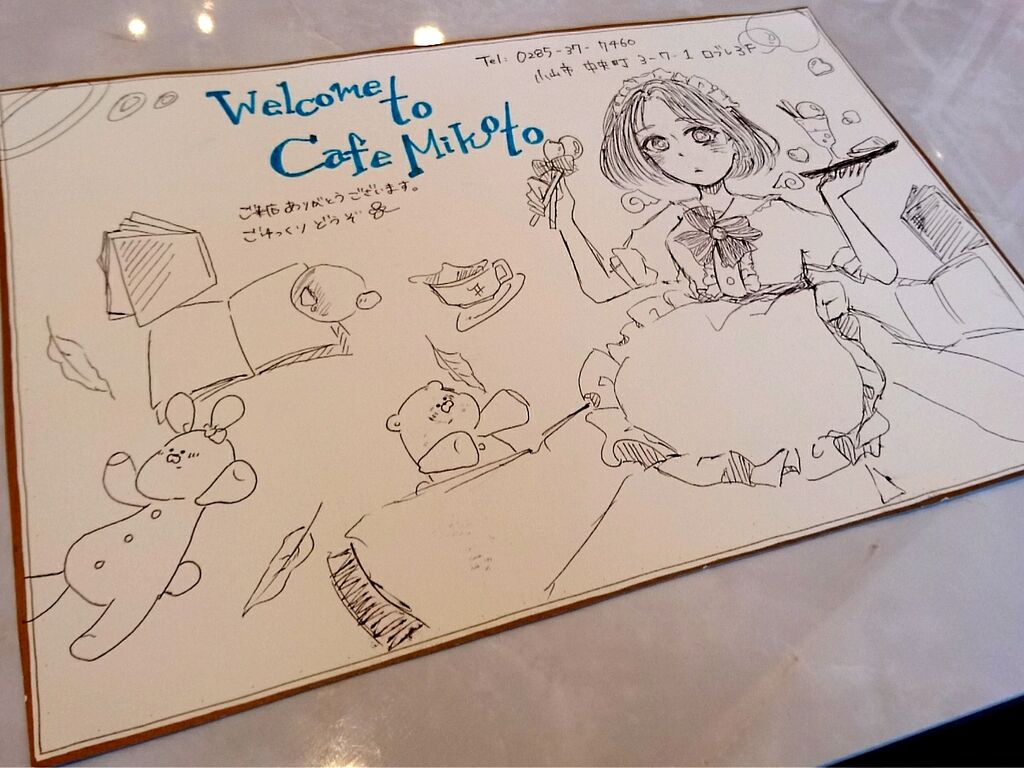 Tel: 0285-37-7460
小山市 中央町 3-7-1 ロブレ3F
Welcome to
Cafe Mikoto
ご来店ありがとうございます。
ごゆっくりどうぞ